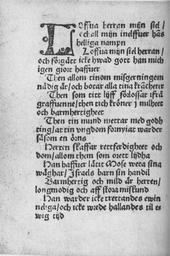 LOffua herran mijn siel/
och all mijn inelffuer hans
helliga nampn
Loffua mijn siel herran/
och förgät icke hwad gott han mich
igen giort haffuer
Then allom tinom misgerningom
nådig är/ och botar alla tina krächeer
Then som titt lijff förlosar frå
graffuenne/ then tich kröner i milheet
och barmhertigheet
Then tin mund mettar med godh
ting/ at tin vngdom fornyiat warder
såsom en örns
Herren skaffar rettferdigheet och
dom/ allom them som orett lijdha
Han haffuer lätit Mose weta sina
wäghar/ Israels barn sin handil
Barmhertig och mild är herren/
longmodig och aff stoor miskund
Han warder icke trettandes ewin
nerliga/ och icke wrede hallandes til e
wig tijd